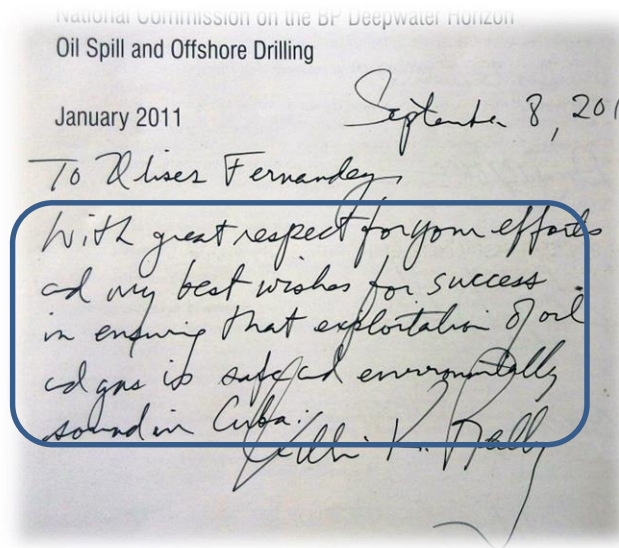 National Commission on the BP Deepwater Horizon
Oil Spill and Offshore Drilling
January 2011
September 8, 201
To Ulises Fernandez,
With great respect for your efforts
ad my best wishes for success
in ensuring that exploitation of oil
ad gas is safe ad environmentally
sound in Cuba.
William K. Reilly